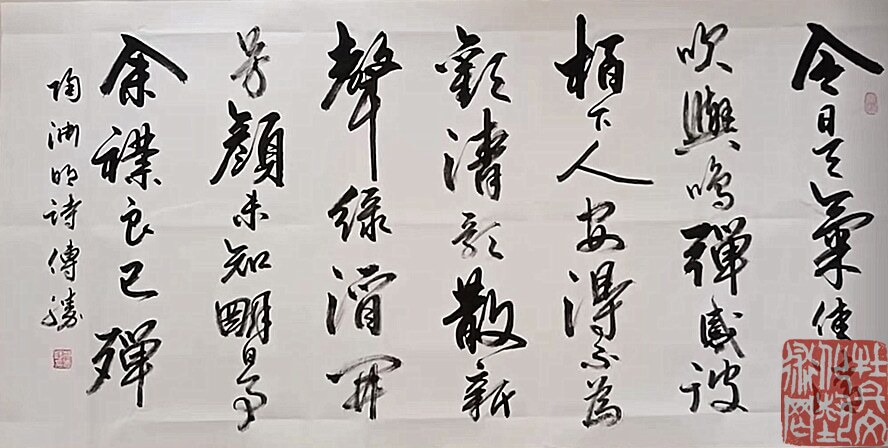 今日天氣佳清
吹與鳴彈感彼
柏下人安得不為
歡清歌散新
聲綠酒開
芳顏未知明日事
余襟良已殫
陶淵明詩傳勝